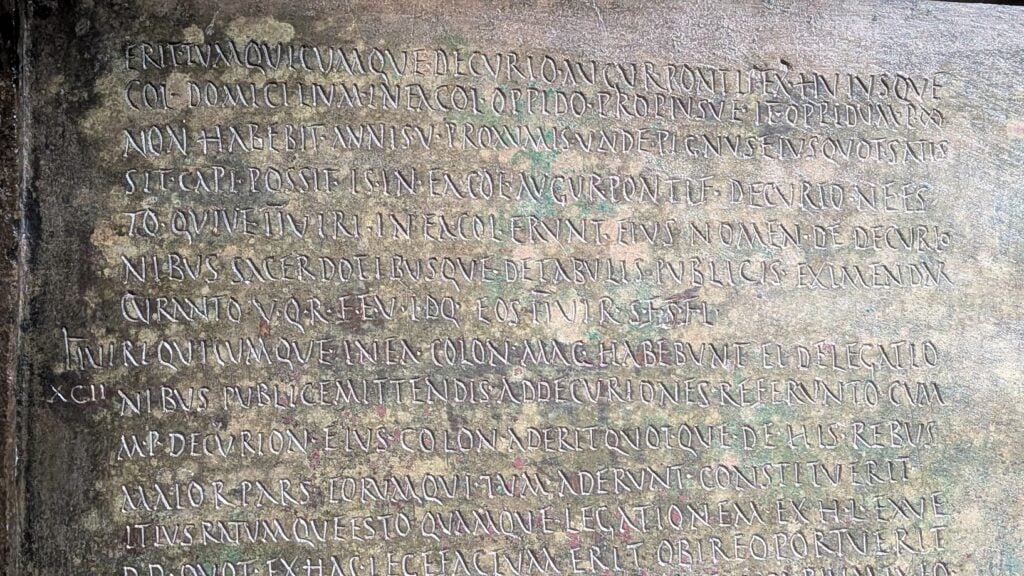 ERIT TVM QVICVMQVE DECVRIO AVGVR PONTIFEX HVIVSQVE
COL· DOMICILIVM IN EA COL OPPIDO· PROPIVSVE IT OPPIDVM P ∞
NON HABEBIT ANNIS V· PROXVMIS VNDE PIGNVS EIVS QVOT SATIS
SIT· CAPI· POSSIT· IS IN EA COL AVGVR PONTIF· DECVRIO· NE ES
TO· QVIVE IIVIRI· IN EA COL ERVNT· EIVS NOMEN· DE DECVRIO
NIBVS SACERDOTIBVSQVE· DE TABVLIS· PVBLICIS· EXIMENDVM
CVRANTO· V· Q· R· F· E V· IDQ· EOS· IIVIR S· F· S· F· L·
IIVIRI QVICVMQVE· IN EA· COLON· MAG· HABEBVNT EI DE LEGATIO
XCII
NIBVS PVBLICE MITTENDIS· AD DECVRIONES REFERVNTO CVM
M· P· DECVRION· EIVS· COLON· ADERIT QVOTQVE· DE HIS REBVS
MAIOR PARS· EORVM QVI TVM ADERVNT· CONSTITVERIT
IT IVS RATVMQVE ESTO· QVAMQVE· LEGATIONEM EX H· L· EXVE
D· D· QVOT· EX HAC LEGE FACTVM ERIT OBIRE OPORTVERIT